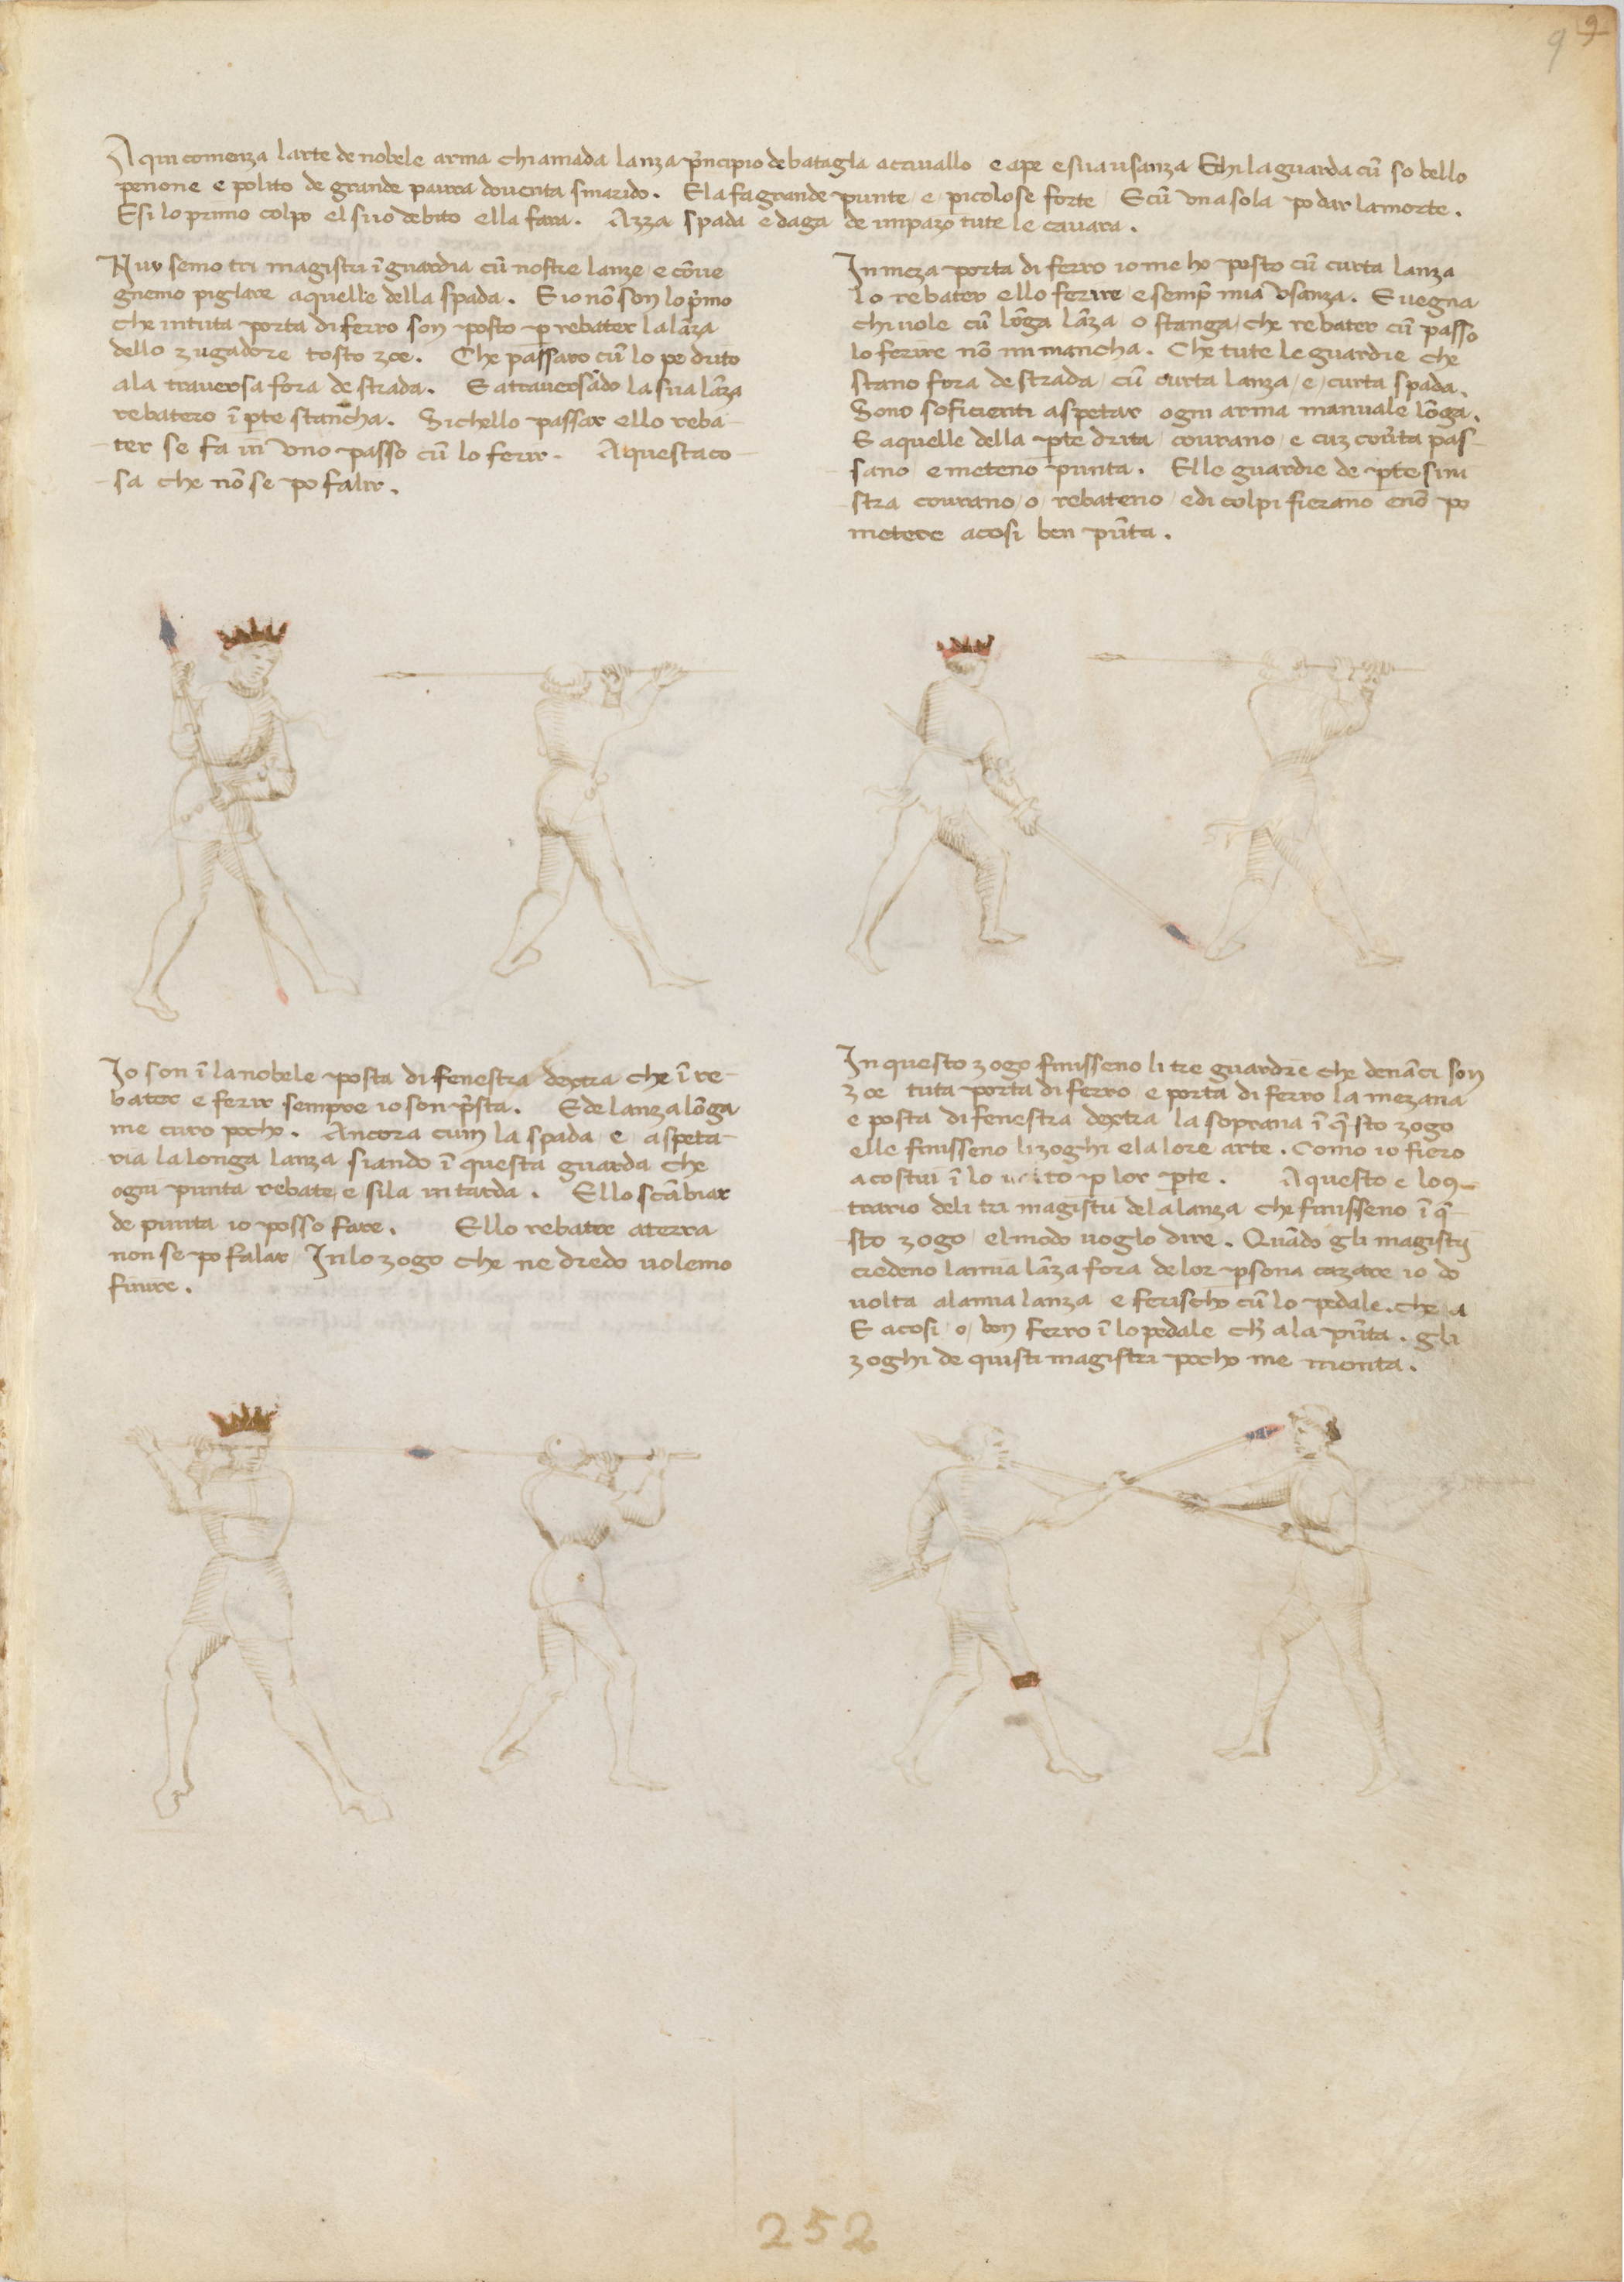 9 9
A qui comenza larte de nobele arma chiamada lanza p̃ncipio de batagla acauallo e ape e sua usanza E chi la guarda cū so bello
penone e polito de grande paura douenta smarido. Ela fa grande punte e picolose forte E cū una sola po dar la morte.
E si lo primo colpo el suo debito ella fara. Azza spada e daga de impazo tute le cauara.
Nuy semo tri magistri ī guardia cū nostre lanze e cōue
gnemo piglare aquelle della spada. E io nō son lo p̃mo
che in tuta porta di ferro son posto p rebater la lāza
dello zugadore tosto zoe. Che passaro cū lo pe drito
ala trauersa fora de strada. E atrauersādo la sua lāza
rebatero ī pte stancha. Si chello passar ello reba-
-ter se fa in uno passo cū lo ferir. A questa co-
-sa che nō se po falir.
In meza porta di ferro io me ho posto cū curta lanza
lo rebater ello ferire e semp̃ mia usanza. E uegna
chi uole cū lōga lāza o stanga che rebater cū passo
lo ferire nō mi mancha. Che tute le guardie che
stano fora de strada cū curta lanza e curta spada.
Sono soficienti aspetar ogni arma manuale lōga.
E aquelle della pte drita courano e cuz couẽta pas-
sano e meteno punta. Elle guardie de pte sini
stra courano o rebateno e di colpi fierano enō po
metere acosi ben pūta.
Io son ī la nobele posta di fenestra dextra che ī re-
bater e ferir sempre io son p̃sta. E de lanza lōga
me curo pocho. Ancora cum la spada e aspeta-
ria la longa lanza siando ī questa guarda che
ogni punta rebate e si la intarda. Ello scābiar
de punta io posso fare. Ello rebater aterra
non se po falar In lo zogo che ne dredo uolemo
finire.
In questo zogo finisseno li tre guardie che denāci son
zoe tuta porta di ferro e porta di ferro la mezana
e posta di fenestra dextra la soprana ī q̃sto zogo
elle finisseno li zoghi e la lore arte. Como io fiero
acostui ī lo uolto p lor pte. A questo e lo 9-
trario deli tri magistri dela lanza che finisseno ī q̃-
sto zogo el modo uoglo dire. Quādo gli magistrj
credeno la mia lāza fora de lor psona cazare io do
uolta ala mia lanza e ferischo cū lo pedale. che a
E acosi o bon ferro ī lo pedale ch̃ ala pūta. gli
zoghi de quisti magistri pocho me monta.
252